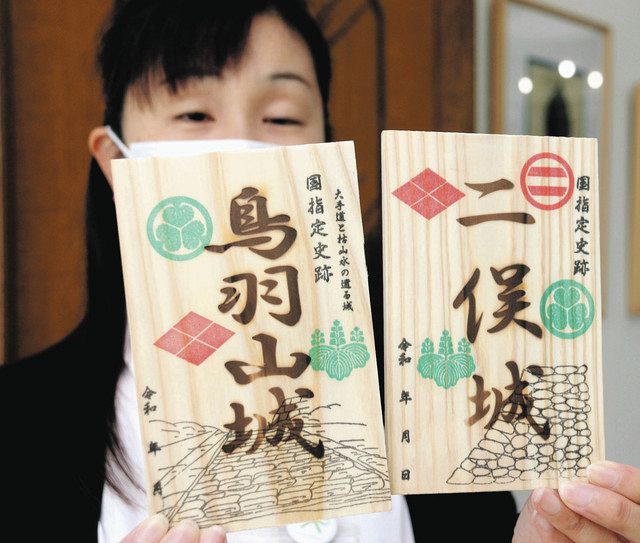 国指定史跡
大手道と枯山水の遺る城
鳥羽山城
令和 年 月
国指定史跡
二俣城
令和 年 月 日